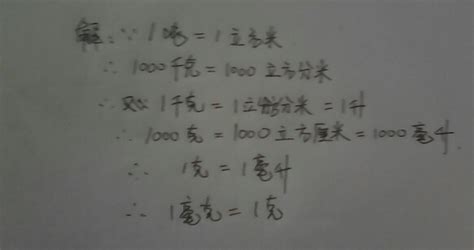 解：∵ 1吨=1立方米
∴ 1000千克=1000立方分米
∴ 又∵ 1千克=1立方分米=1升
∴ 1000克=1000立方厘米=1000毫升.
∴ 1克=1毫升
∴ 1毫克=1克